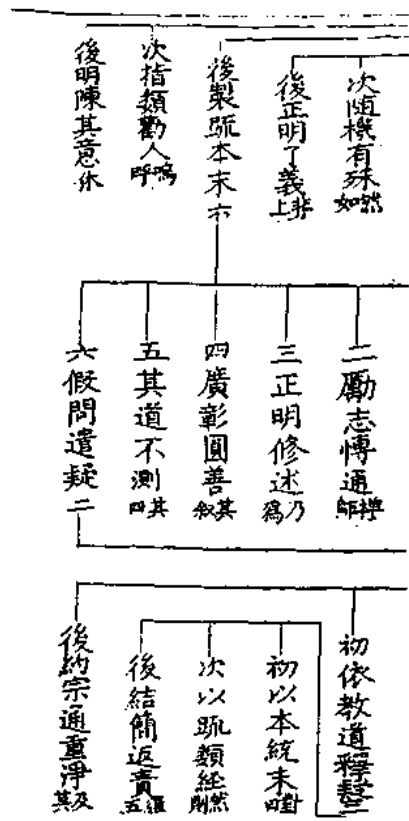 次隨機有殊然如
後正明了義非上
後製䟽本末六
次指類勸人嗚呼
後明陳其意休
二勵志博通禪師
三正明修述乃爲
四廣彰圓善其叙
五其道不測其四
六假問遣疑二
初依教道釋
初以本統末對曰
次以䟽類經然則
後結簡返責
後約宗通重淨及其